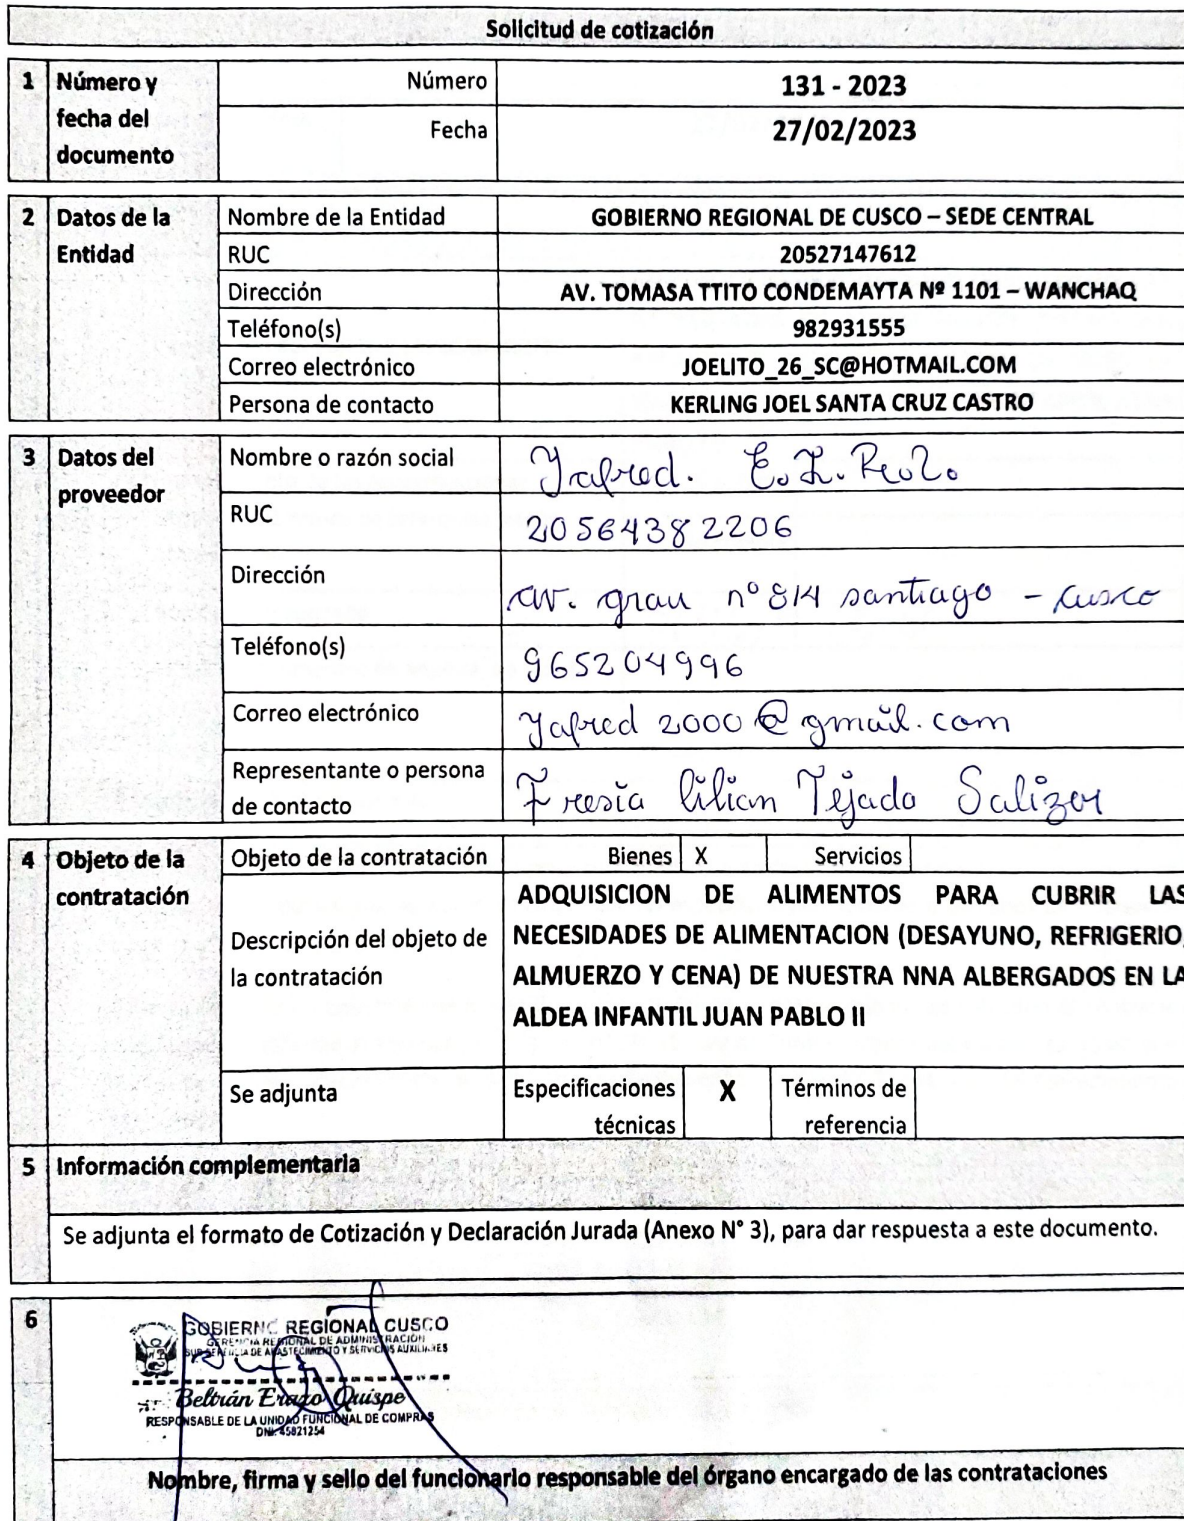 Solicitud de cotización
1 Número y fecha del documento
Número 131 - 2023
Fecha 27/02/2023
2 Datos de la Entidad
Nombre de la Entidad GOBIERNO REGIONAL DE CUSCO – SEDE CENTRAL
RUC 20527147612
Dirección AV. TOMASA TTITO CONDEMAYTA Nº 1101 – WANCHAQ
Teléfono(s) 982931555
Correo electrónico JOELITO_26_SC@HOTMAIL.COM
Persona de contacto KERLING JOEL SANTA CRUZ CASTRO
3 Datos del proveedor
Nombre o razón social Yafred. E.I.R.L.
RUC 20564382206
Dirección av. grau n° 814 santiago - cusco
Teléfono(s) 965204996
Correo electrónico Yafred 2000@gmail.com
Representante o persona de contacto Fresia lilian Tejada
4 Objeto de la contratación
Objeto de la contratación Bienes X Servicios
Descripción del objeto de la contratación
ADQUISICION DE ALIMENTOS PARA CUBRIR LAS
NECESIDADES DE ALIMENTACION (DESAYUNO, REFRIGERIO,
ALMUERZO Y CENA) DE NUESTRA NNA ALBERGADOS EN LA
ALDEA INFANTIL JUAN PABLO II
Se adjunta Especificaciones técnicas X Términos de referencia
5 Información complementaria
Se adjunta el formato de Cotización y Declaración Jurada (Anexo N° 3), para dar respuesta a este documento.
6
GOBIERNO REGIONAL CUSCO
GERENCIA REGIONAL DE ADMINISTRACIÓN
SUB GERENCIA DE ABASTECIMIENTO Y SERVICIOS AUXILIARES
Beltrán Erazo Quispe
RESPONSABLE DE LA UNIDAD FUNCIONAL DE COMPRAS
DNI: 45821254
Nombre, firma y sello del funcionario responsable del órgano encargado de las contrataciones